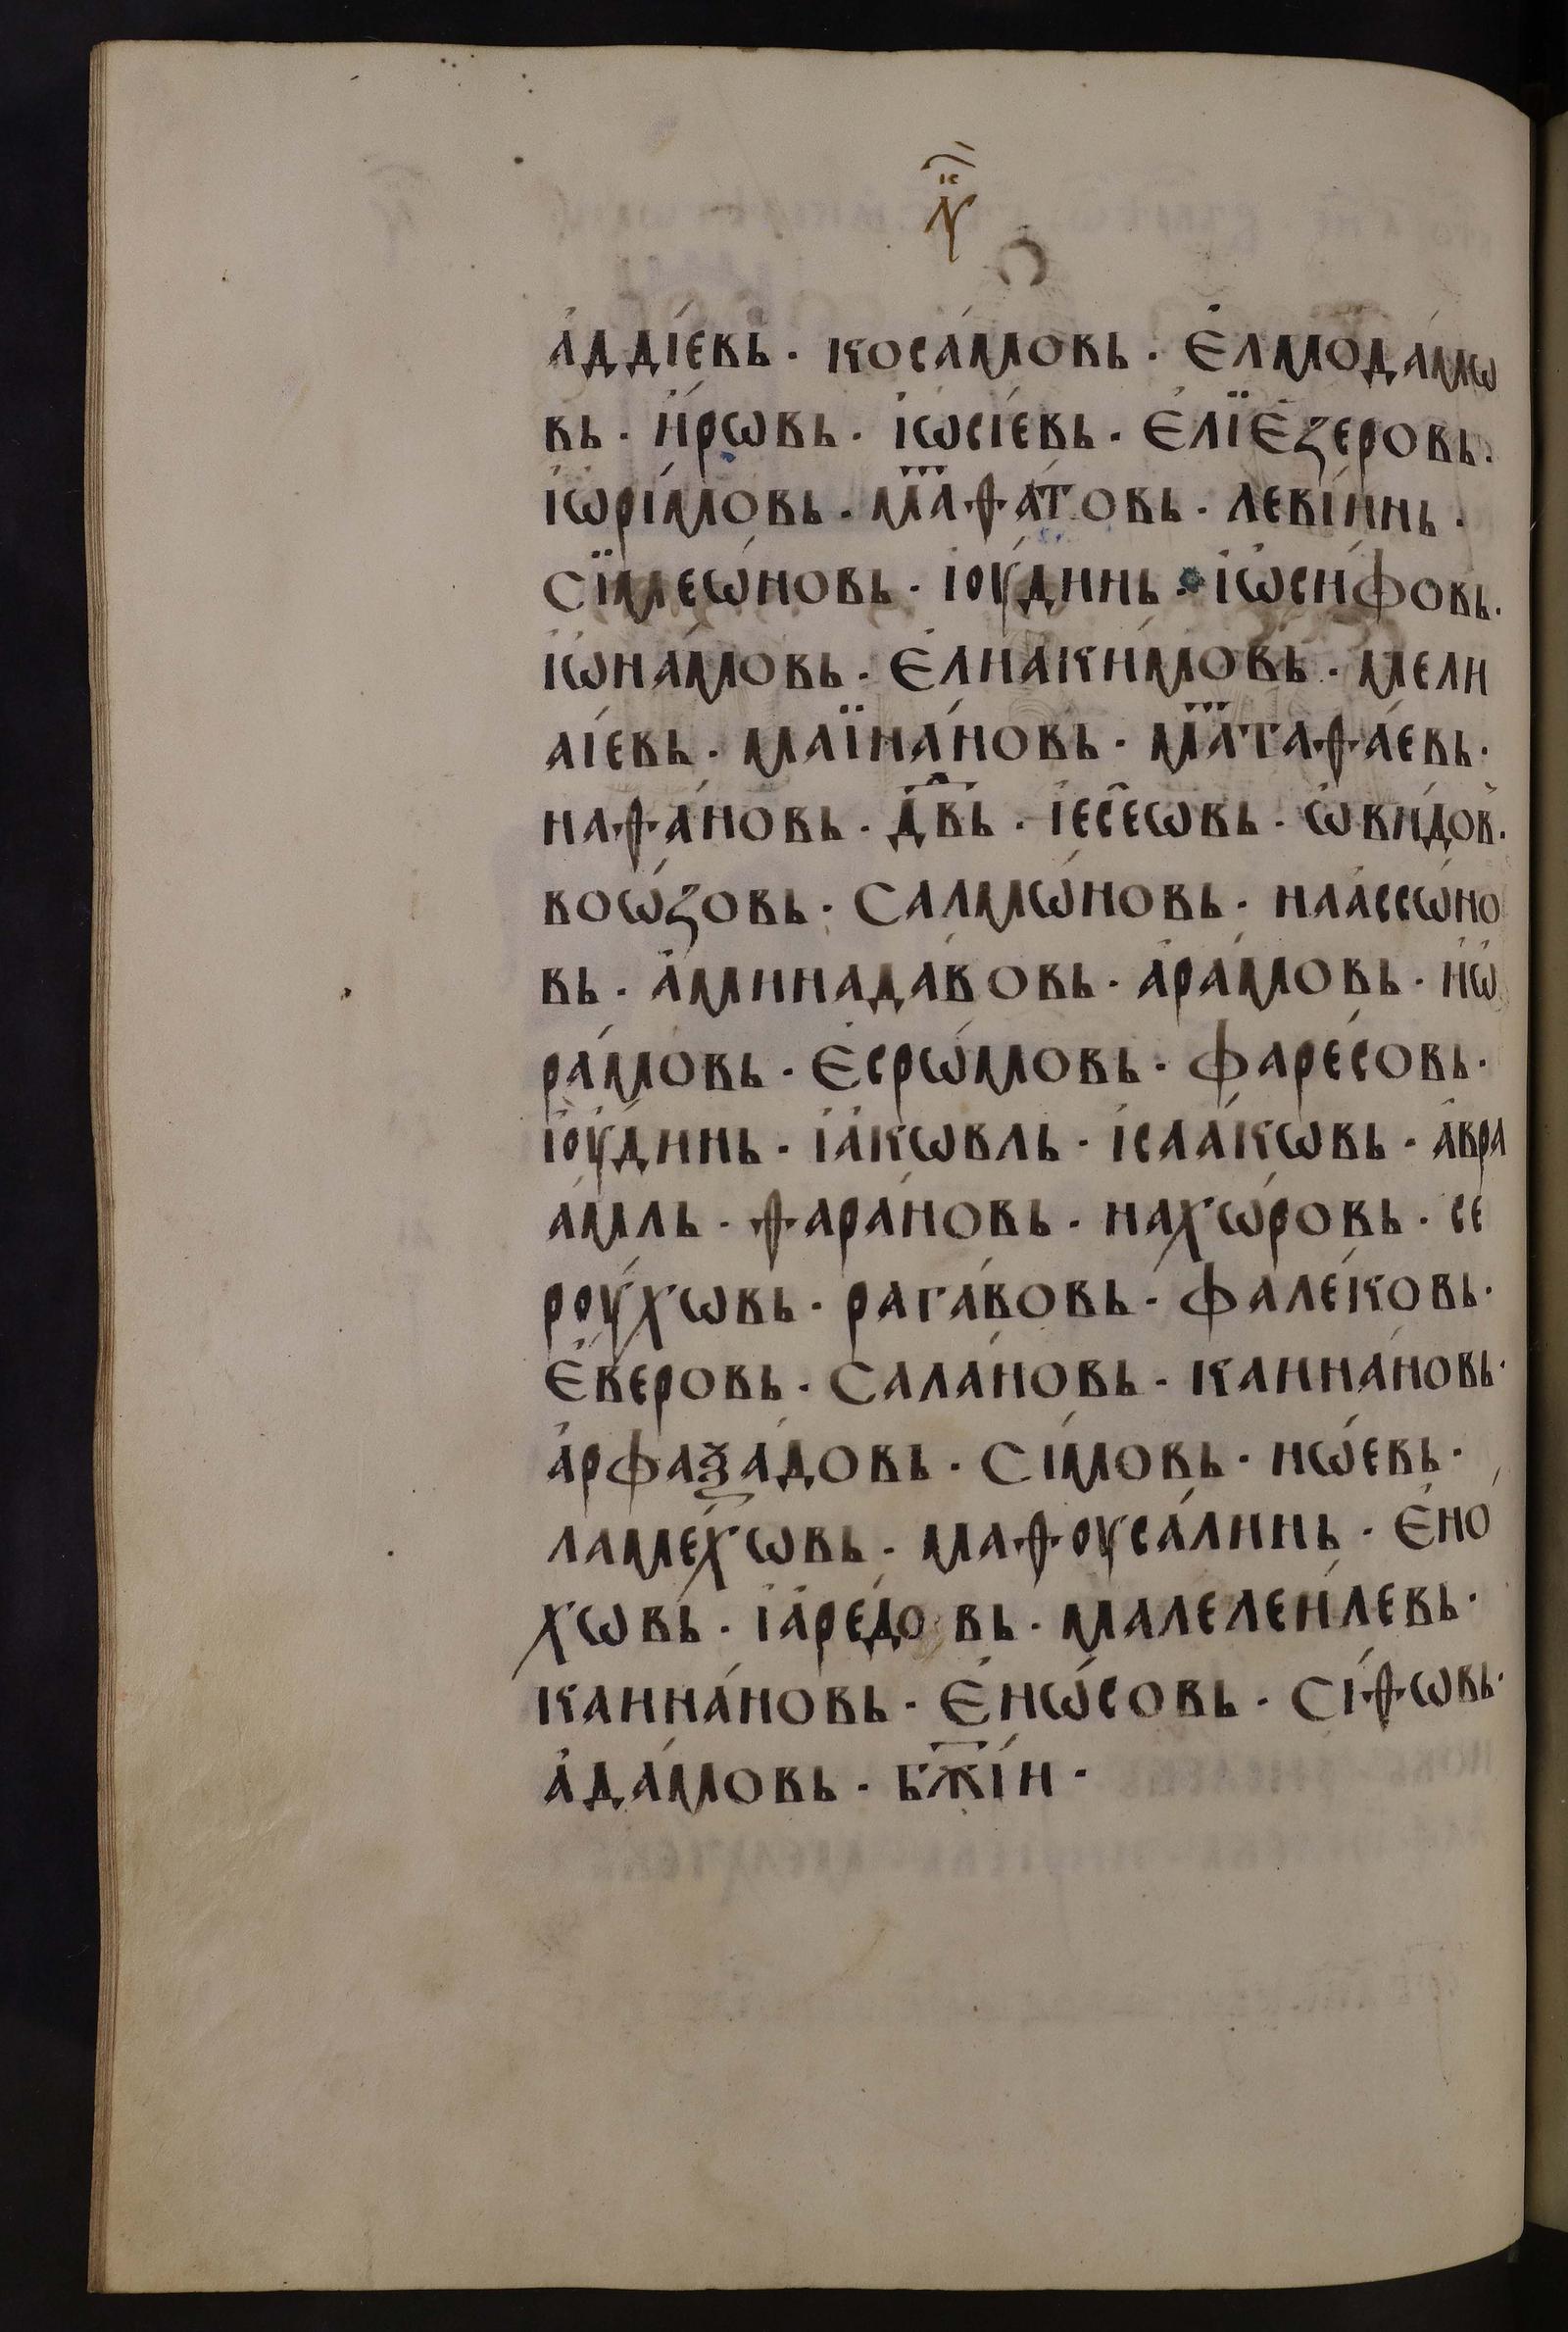 а҆ддїєвь · коса́мовь · Є҆лмода́мѡ
вь · и҆́рѡвь · і҆ѡсі́евь · Є҆лїе҆́зеровь ·
і҆ѡрі́мовь · мӓѳа́товь · леві́инь ·
Сїмеѡ́новь · і҆оу́динь · і҆ѡ́сифовь ·
і҆ѡна́мовь · Є҆лиаки́мовь · мели
аі́евь · маїна́новь · мӓтаѳа́евь ·
наѳа́новь · дв҃ь · і҆есе́ѡвь · ѡ҆ви́дов ·
воѡ́зовь · Салмѡ́новь · наассѡ́но
вь · а҆минада́вовь · а҆ра́мовь · иѡ҆
ра́мовь · Є҆срѡ́мовь · фаре́совь ·
і҆оу́динь · і҆а́кѡвль · і҆саа́кѡвь · а҆вра
а́мль · ѳара́новь · нахѡ́ровь · се
роу́хѡвь · рага́вовь · фале́ковь ·
Є҆́веровь · Сала́новь · каина́новь ·
а҆рфаѯа́довь · Сі́мовь · нѡ́евь ·
ламе́хѡвь · маѳоуса́линь · Є҆но́
хѡвь · і҆аре́довь · малелеи́левь ·
каина́новь · Є҆нѡ́совь · Сі́ѳѡвь ·
а҆да́мовь · бж҃їи ·